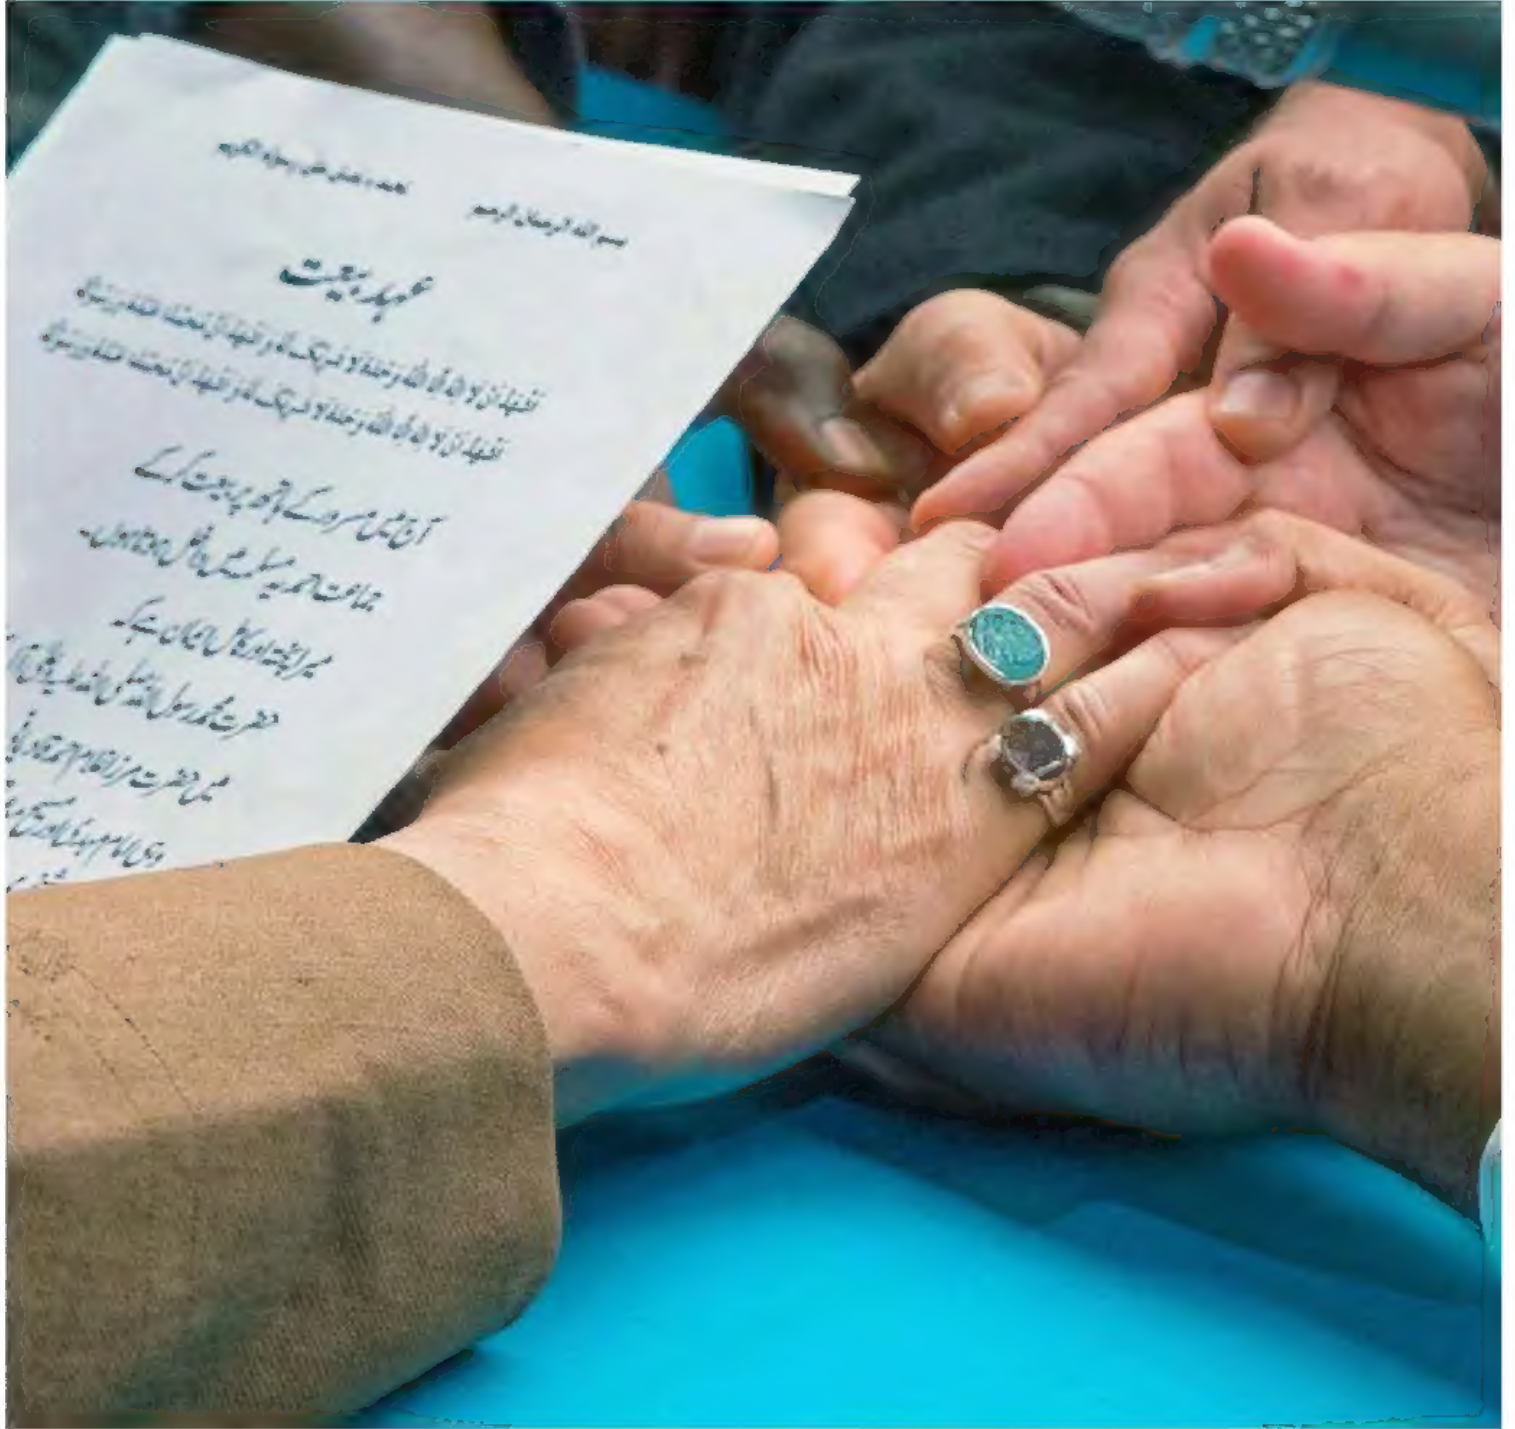 بسم اللہ الرحمان الرحیم نحمدہ و نصلی علی رسولہ الکریم
عہد بیعت
اَشْهَدُ اَنْ لَّا اِلٰهَ اِلَّا اللّٰهُ وَحْدَهٗ لَا شَرِیْکَ لَهٗ وَ اَشْهَدُ اَنَّ مُحَمَّدًا عَبْدُهٗ وَرَسُوْلُهٗ
اَشْهَدُ اَنْ لَّا اِلٰهَ اِلَّا اللّٰهُ وَحْدَهٗ لَا شَرِیْکَ لَهٗ وَ اَشْهَدُ اَنَّ مُحَمَّدًا عَبْدُهٗ وَرَسُوْلُهٗ
آج میں مسرور کے ہاتھ پر بیعت کر کے
جماعت احمدیہ مسلمہ میں داخل ہوتا ہوں۔
میرا پختہ اور کامل ایمان ہے کہ
حضرت محمد رسول اللہ صلی اللہ علیہ
میں حضرت مرزا غلام احمد قادیانی
وہی امام مہدی اور مسیح